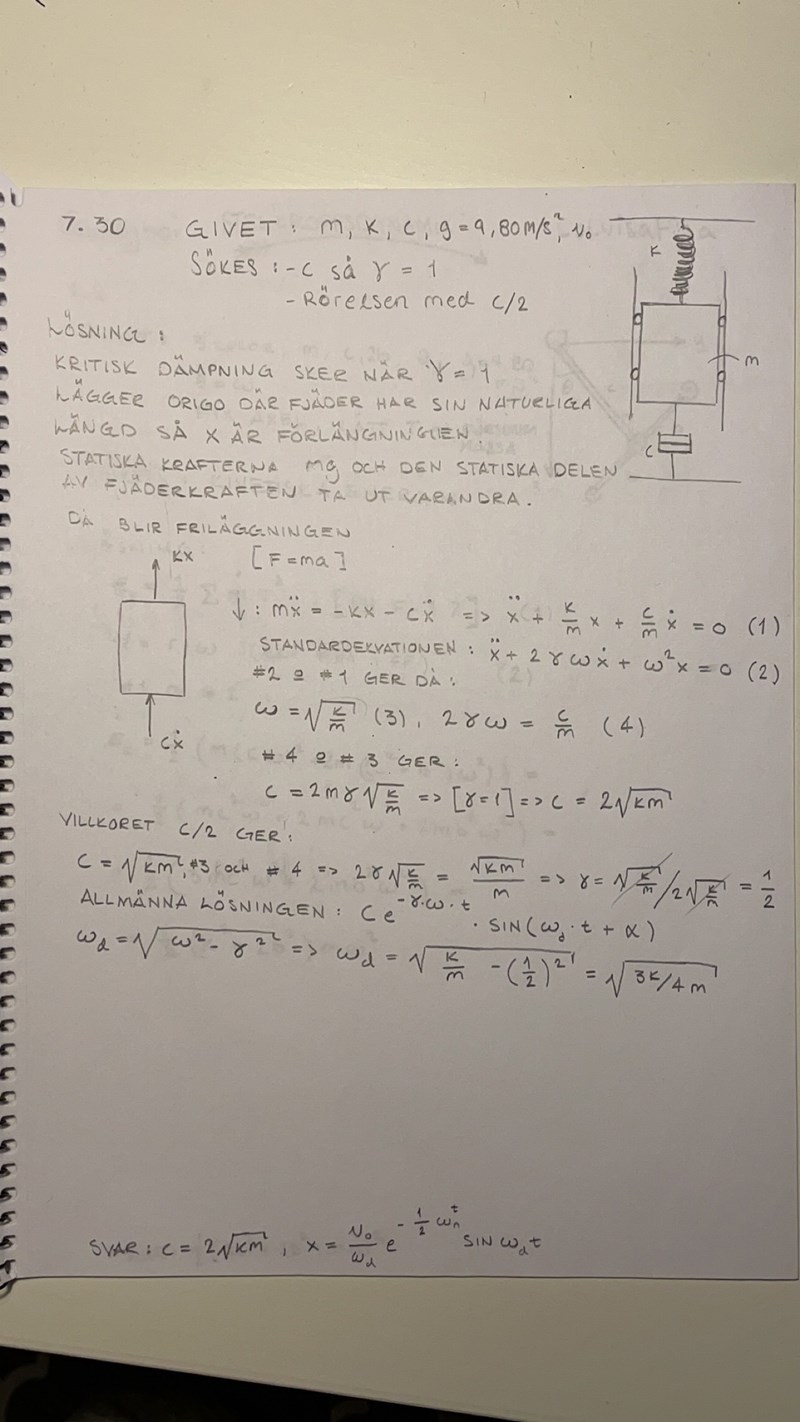 7.30 GIVET: m, K, C, g=9,80m/s², v₀
SÖKES: -C så γ = 1
- Rörelsen med C/2
K
m
C
LÖSNING:
KRITISK DÄMPNING SKER NÄR γ = 1
LÄGGER ORIGO DÄR FJÄDER HAR SIN NATURLIGA
LÄNGD SÅ X ÄR FÖRLÄNGNINGEN.
STATISKA KRAFTERNA mg OCH DEN STATISKA DELEN
AV FJÄDERKRAFTEN TA UT VARANDRA.
DÅ BLIR FRILÄGGNINGEN
KX
[F=ma]
↓: mẍ = -KX - Cẋ => ẍ + K/m x + C/m ẋ = 0 (1)
STANDARDEKVATIONEN: ẍ + 2γωẋ + ω²x = 0 (2)
#2 o #1 GER DÅ:
ω = √(K/m) (3), 2γω = C/m (4)
Cẋ
#4 o #3 GER:
C = 2mγ√(K/m) => [γ=1] => C = 2√(Km)
VILLKORET C/2 GER:
C = √(Km), #3 OCH #4 => 2γ√(K/m) = √(Km)/m => γ = √(K/m)/2√(K/m) = 1/2
ALLMÄNNA LÖSNINGEN: Ce^(-γ·ω·t) · SIN(ω_d·t + α)
ω_d = √(ω² - γ²) => ω_d = √(K/m - (1/2)²) = √(3K/4m)
SVAR: C = 2√(Km), x = v₀/ω_d e^(-1/2 ω_n t) SIN ω_d t